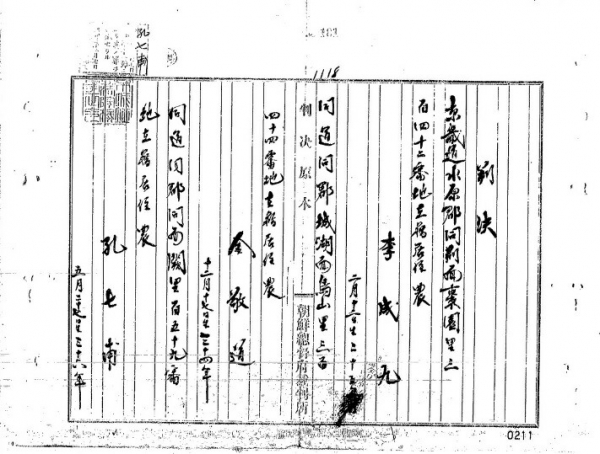 孔七甫
1118
判決
京畿道水原郡同面里三
百四十二番地在籍居住 農
李成九
二月十日生二十五
同道同郡城湖面烏山里三百
判決原本
朝鮮總督府裁判所
四十四番地在籍居住 農
金敬道
十二月十七日生三十四年
同道同郡同面闕里百五十九番
地在籍居住 農
孔七甫
五月二十七日生三十六年
0211